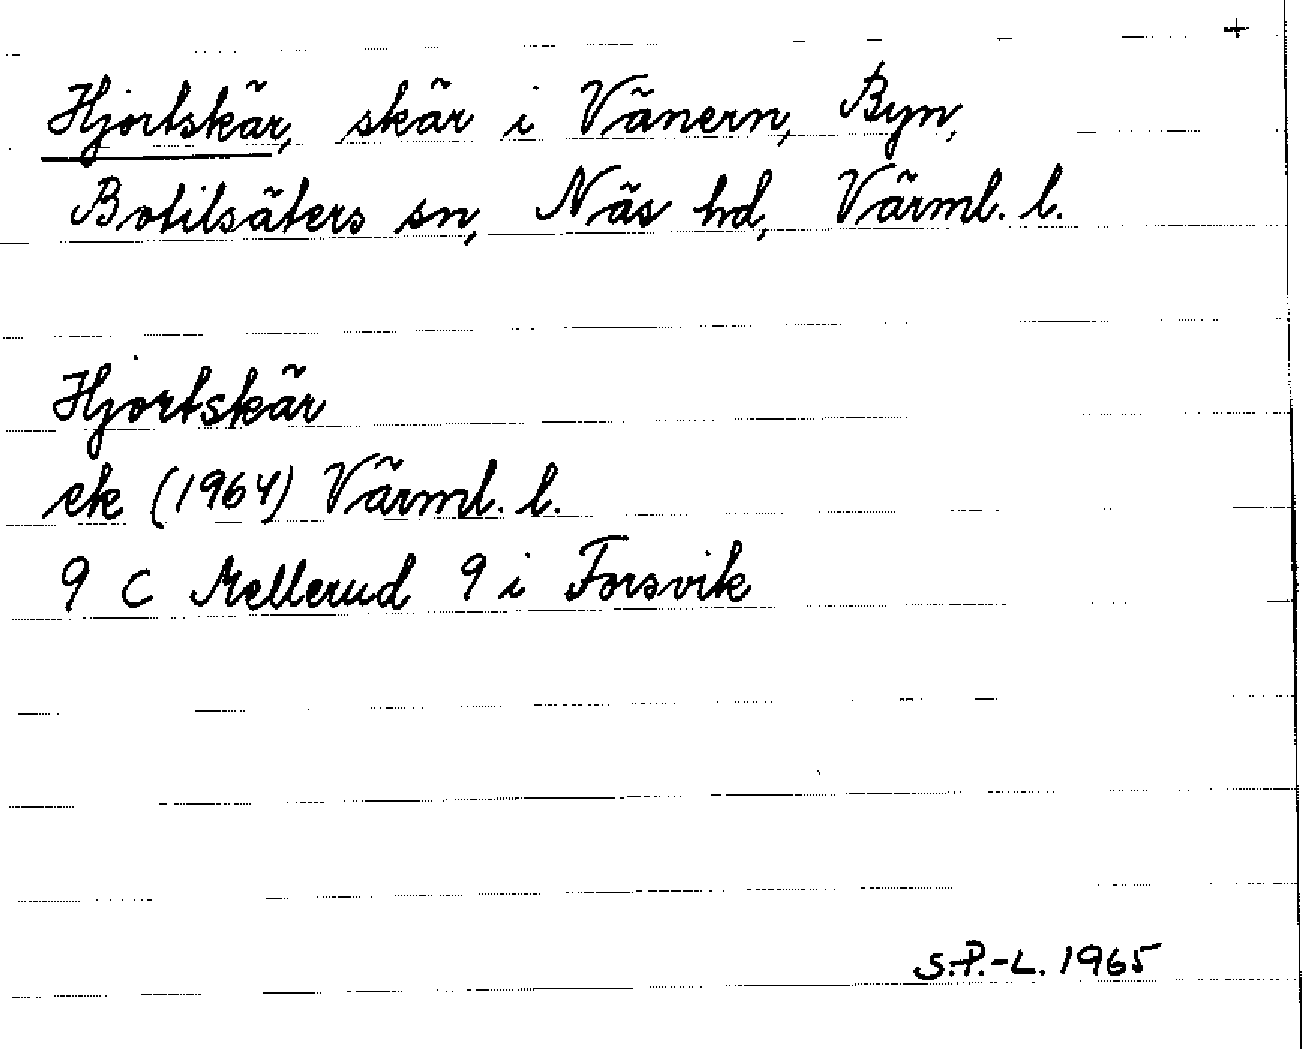 +
Hjortskär, skär i Vänern, Byn,
Botilsäters sn, Näs hd, Värml. l.
Hjortskär
ek (1964) Värml. l.
9 C Mellerud 9 i Forsvik
S.P.-L. 1965